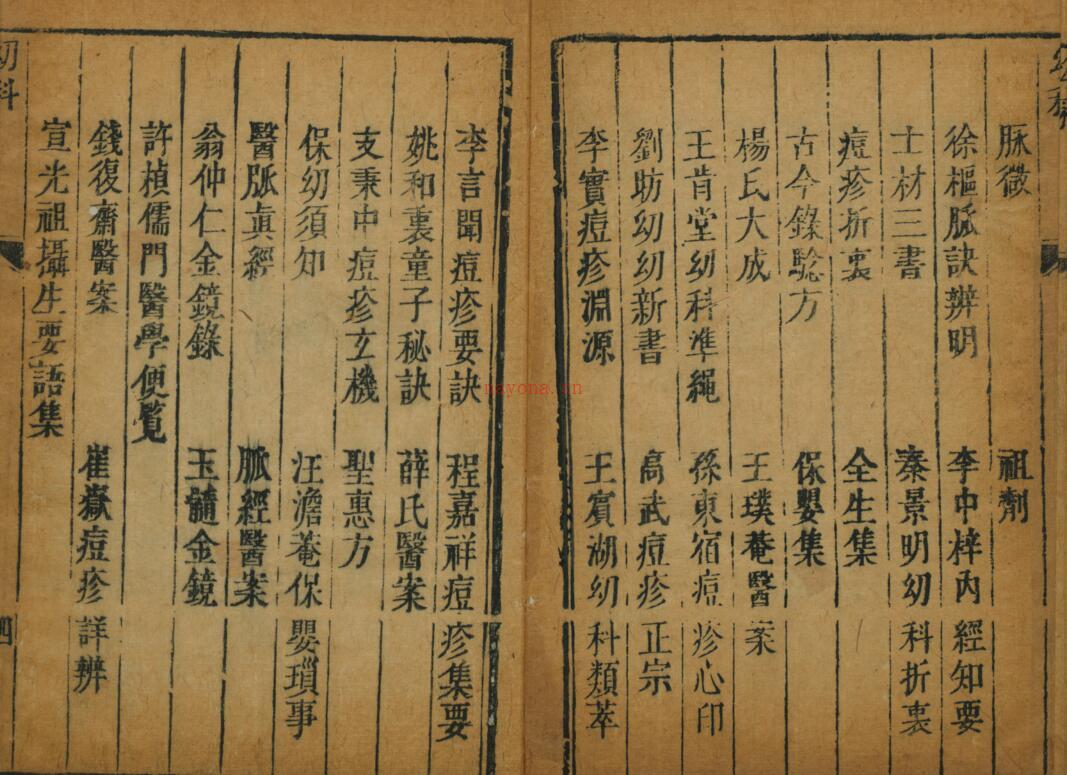 脉微 祖劑
徐樞脈訣辨明 李中梓內經知要
士材三書 秦景明幼科折衷
痘疹折衷 全生集
古今錄騐方 保嬰集
楊氏大成 王璞菴醫案
王肯堂幼科準繩 孫東宿痘疹心印
劉昉幼幼新書 高武痘疹正宗
李實痘疹淵源 王賓湖幼科類萃
李言聞痘疹要訣 程嘉祥痘疹集要
姚和衷童子秘訣 薛氏醫案
支秉中痘疹玄機 聖惠方
保幼須知 汪澹菴保嬰瑣事
醫脈眞經 脈經醫案
翁仲仁金鏡錄 玉髓金鏡
許楨儒門醫學便覽
錢復齋醫案 崔嶽痘疹詳辨
宣光祖攝生要語集
幼科
四
nayona.cn